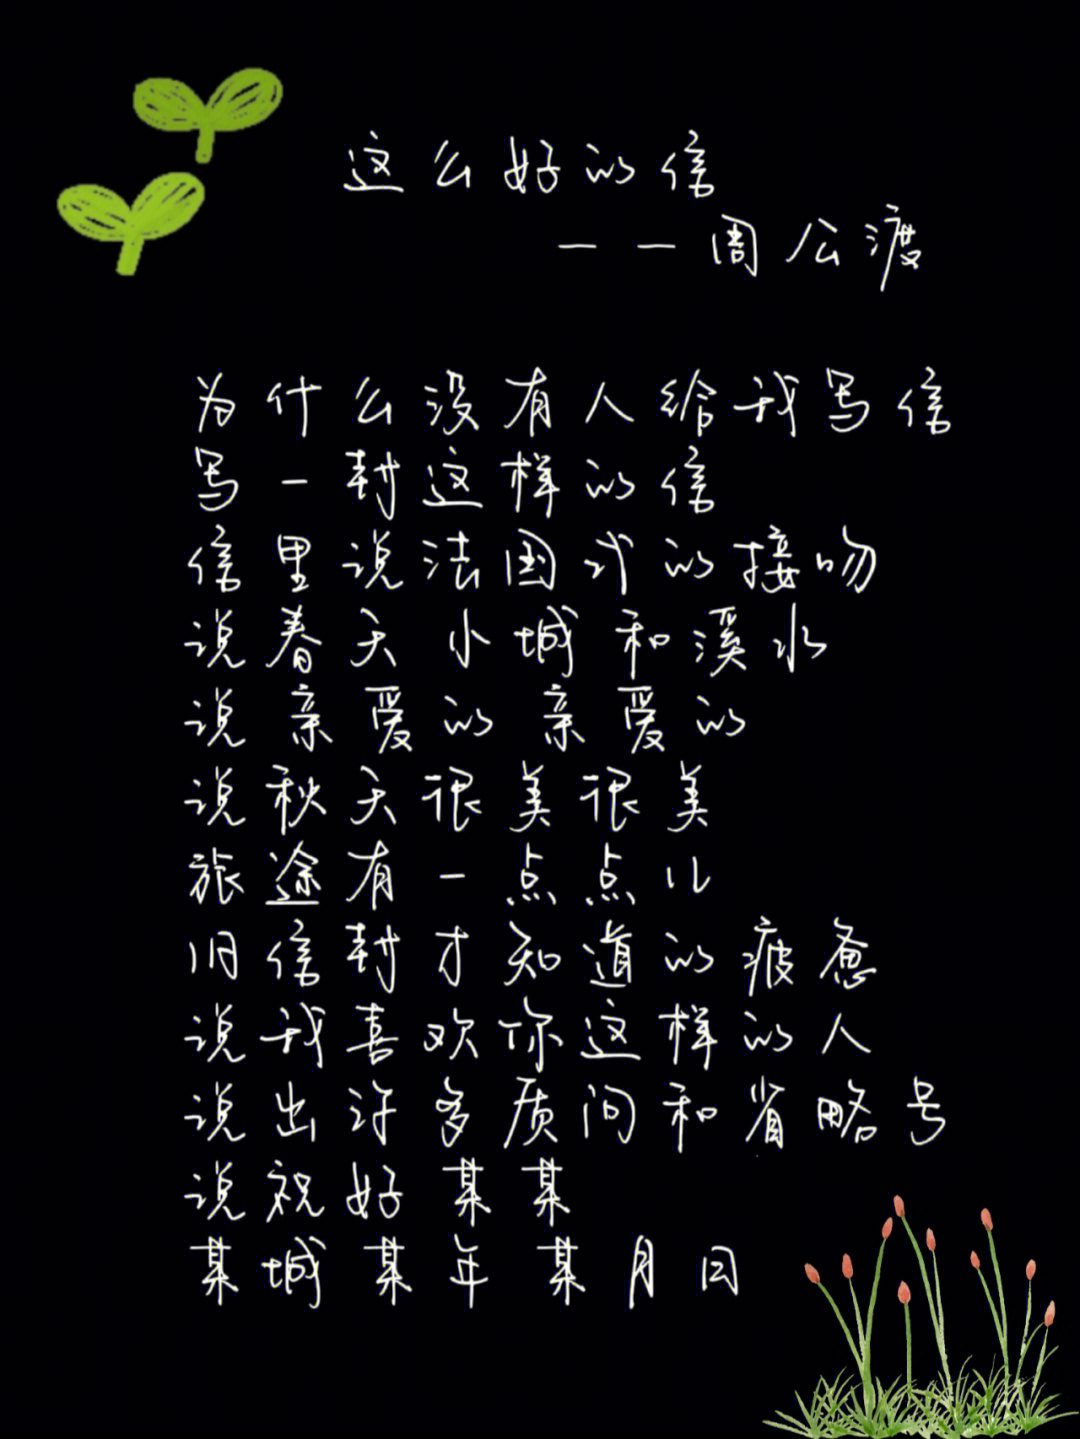 这么好的信
——周公渡
为什么没有人给我写信
写一封这样的信
信里说法国式的接吻
说春天 小城和溪水
说亲爱的 亲爱的
说秋天很美很美
旅途有一点点儿
旧信封才知道的疲惫
说我喜欢你这样的人
说出许多质问和省略号
说祝好 某某
某城 某年 某月日